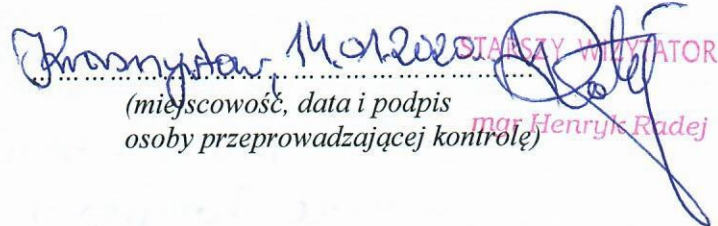 Krasnystaw, 14.01.2020. STARSZY WIZYTATOR
(miejscowość, data i podpis
osoby przeprowadzającej kontrolę) mgr Henryk Radej